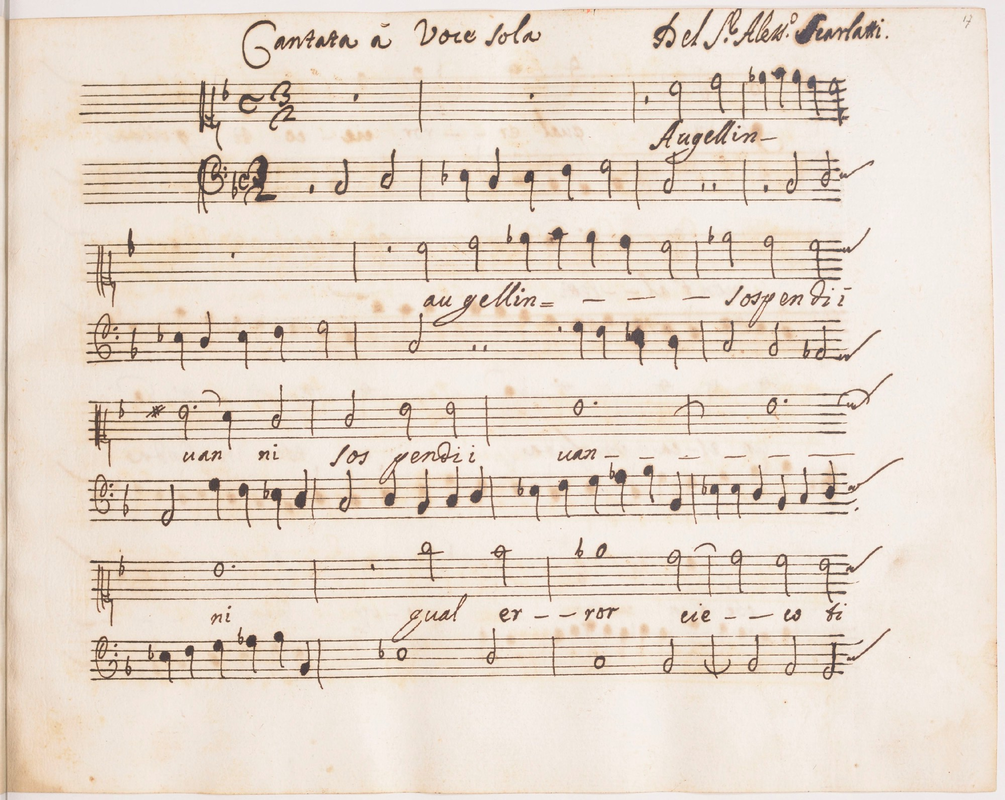 Cantata à Voce sola Del S.r Aless.o Scarlatti.
17
Augellin-
augellin= - - - - sospendi i
uan ni sos pendi i uan - - - - - - -
ni qual er - - ror cie - - co ti